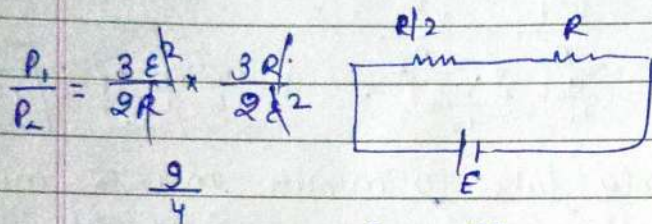 P₁/P₂ = 3ε²/2R × 3R/2ε²
9/4
R/2 R
E